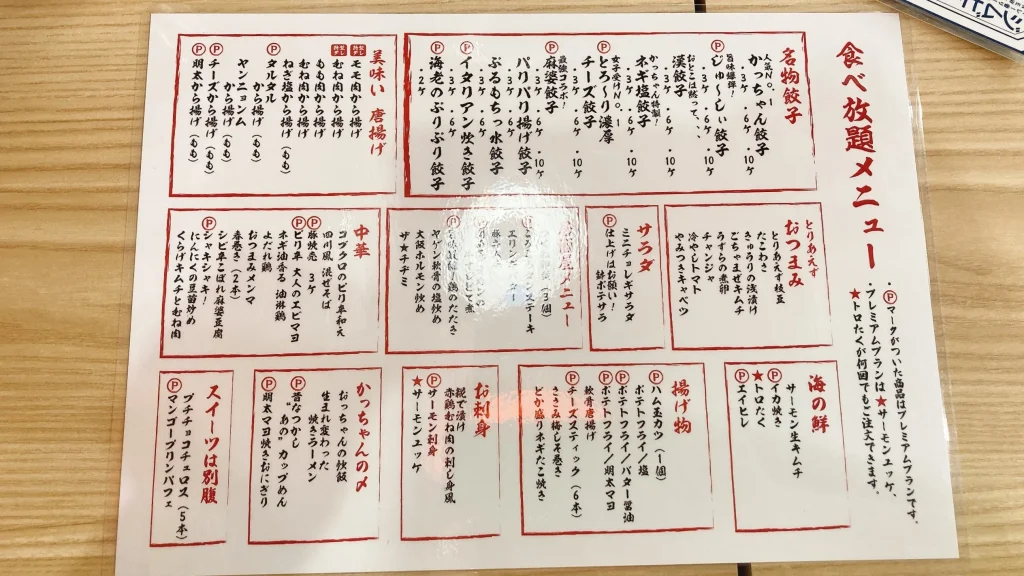 食べ放題メニュー
・Ⓟマークがついた商品はプレミアムプランです。
・プレミアムプランは★サーモンユッケ、
★トロたくが何回でもご注文できます。
名物餃子
人気No.1
かっちゃん餃子
・3ケ ・6ケ ・10ケ
旨味爆弾!
Ⓟじゅ〜しぃ餃子
・3ケ ・6ケ ・10ケ
おとこは黙って、、、
漢餃子
・3ケ ・6ケ ・10ケ
かっちゃん特製!
ネギ塩餃子
・3ケ ・6ケ ・10ケ
女子受けNo.1
Ⓟとろ〜り濃厚
チーズ餃子
・3ケ ・6ケ ・10ケ
最強コラボ!
Ⓟ麻婆餃子
・3ケ ・6ケ ・10ケ
パリパリ揚げ餃子
・3ケ ・6ケ
ぷるもちっ水餃子
・3ケ ・6ケ
Ⓟイタリアン炊き餃子
・3ケ ・6ケ
Ⓟ海老のぷりぷり餃子
・2ケ
美味い 唐揚げ
モモ肉から揚げ
むね肉から揚げ
もも肉から揚げ
むね肉から揚げ
ねぎ塩から揚げ(もも)
Ⓟタルタル
から揚げ(もも)
ヤンニョンム
から揚げ(もも)
Ⓟチーズから揚げ(もも)
Ⓟ明太から揚げ(もも)
とりあえず
おつまみ
とりあえず枝豆
たこわさ
きゅうりの浅漬け
ごちゃまぜキムチ
うずらの煮卵
チャンジャ
冷やしトマト
やみつきキャベツ
サラダ
ミニチョレギサラダ
仕上げはお願い!
Ⓟ鉢ポテサラ
メニュー
(3個)
ステーキ
鶏のたたき
ヤゲン軟骨の塩炒め
大阪ホルモン炒め
ザ★チヂミ
中華
コブクロのピリ辛和え
四川風 混ぜそば
Ⓟ豚焼売 3ケ
Ⓟピリ辛 大人のエビマヨ
ネギ油香る 油淋鶏
よだれ鶏
おつまみメンマ
春巻き(2本)
Ⓟシビ辛こぼれ麻婆豆腐
シャキシャキ!
にんにくの豆苗炒め
くらげキムチとむね肉
海の鮮
サーモン生キムチ
Ⓟイカ焼き
★トロたく
Ⓟエイヒレ
揚げ物
Ⓟハム玉カツ(1個)
ポテトフライ/塩
Ⓟポテトフライ/バター醤油
Ⓟポテトフライ/明太マヨ
軟骨唐揚げ
Ⓟチーズスティック(6本)
ささみ梅しそ巻き
どか盛りネギたこ焼き
お刺身
糀で漬け
赤鶏むね肉の刺し身風
Ⓟサーモン刺身
★サーモンユッケ
かっちゃんの〆
おっちゃんの炒飯
生まれ変わった
焼きラーメン
Ⓟ昔なつかし
“あの”カップめん
Ⓟ明太マヨ焼きおにぎり
スイーツは別腹
プチチョコチュロス(5本)
Ⓟマンゴープリンパフェ